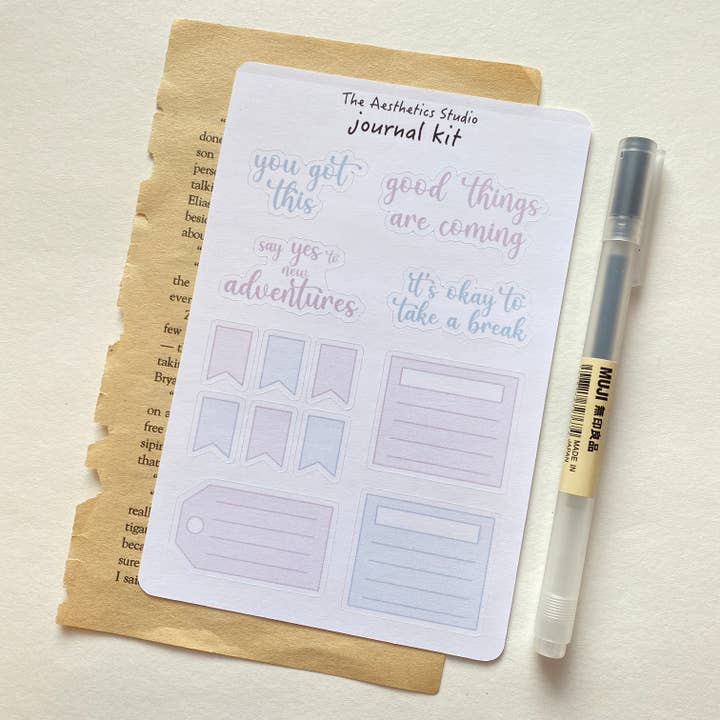 The Aesthetics Studio
journal kit
you got
this
good things
are coming
say yes to
new
adventures
it's okay to
take a break
MUJI 無印良品
MADE IN
JAPAN
done
son
talki
Elias
besi
abou
the
even
few
takin
Brya
on a
free
sipin
that
reall
tigan
beca
sure
I sai